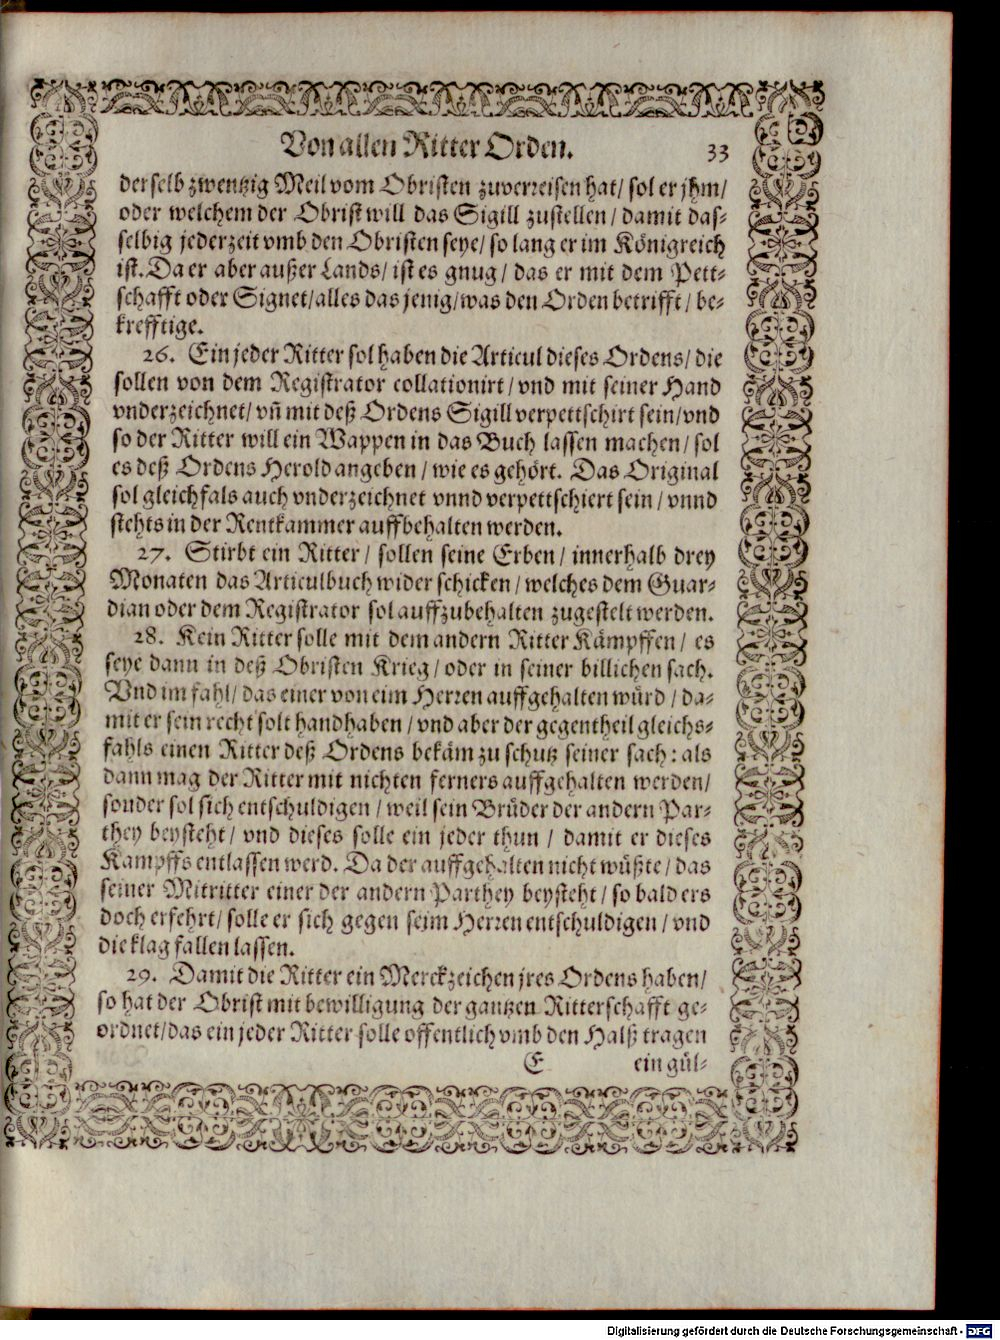 Von allen Ritter Orden. 33
derselb zwentzig Meil vom Obristen zuverreisen hat/ sol er jhm/
oder welchem der Obrist will das Sigill zustellen / damit das-
selbig jederzeit vmb den Obristen seye/ so lang er im Königreich
ist. Da er aber außer Lands/ ist es gnug/ das er mit dem Pett-
schafft oder Signet/ alles das jenig/ was den Orden betrifft / be-
krefftige.
26. Ein jeder Ritter sol haben die Articul dieses Ordens/ die
sollen von dem Registrator collationirt/ vnd mit seiner Hand
vnderzeichnet/ vñ mit deß Ordens Sigill verpettschirt sein/ vnd
so der Ritter will ein Wappen in das Buch lassen machen/ sol
es deß Ordens Herold angeben / wie es gehört. Das Original
sol gleichfals auch vnderzeichnet vnnd verpettschiert sein / vnnd
stehts in der Rentkammer auffbehalten werden.
27. Stirbt ein Ritter / sollen seine Erben / innerhalb drey
Monaten das Articulbuch wider schicken / welches dem Guar-
dian oder dem Registrator sol auffzubehalten zugestelt werden.
28. Kein Ritter solle mit dem andern Ritter Kämpffen / es
seye dann in deß Obristen Krieg / oder in seiner billichen sach.
Vnd im fahl/ das einer von eim Herren auffgehalten würd / da-
mit er sein recht solt handhaben / vnd aber der gegentheil gleichs-
fahls einen Ritter deß Ordens bekäm zu schutz seiner sach: als
dann mag der Ritter mit nichten ferners auffgehalten werden/
sonder sol sich entschuldigen / weil sein Brüder der andern Par-
they beysteht / vnd dieses solle ein jeder thun / damit er dieses
Kampffs entlassen werd. Da der auffgehalten nicht wüßte / das
seiner Mitritter einer der andern Parthey beysteht / so bald ers
doch erfehrt/ solle er sich gegen seim Herren entschuldigen / vnd
die klag fallen lassen.
29. Damit die Ritter ein Merckzeichen jres Ordens haben/
so hat der Obrist mit bewilligung der gantzen Ritterschafft ge-
ordnet/ das ein jeder Ritter solle offentlich vmb den Halß tragen
E ein gül-
Digitalisierung gefördert durch die Deutsche Forschungsgemeinschaft - DFG